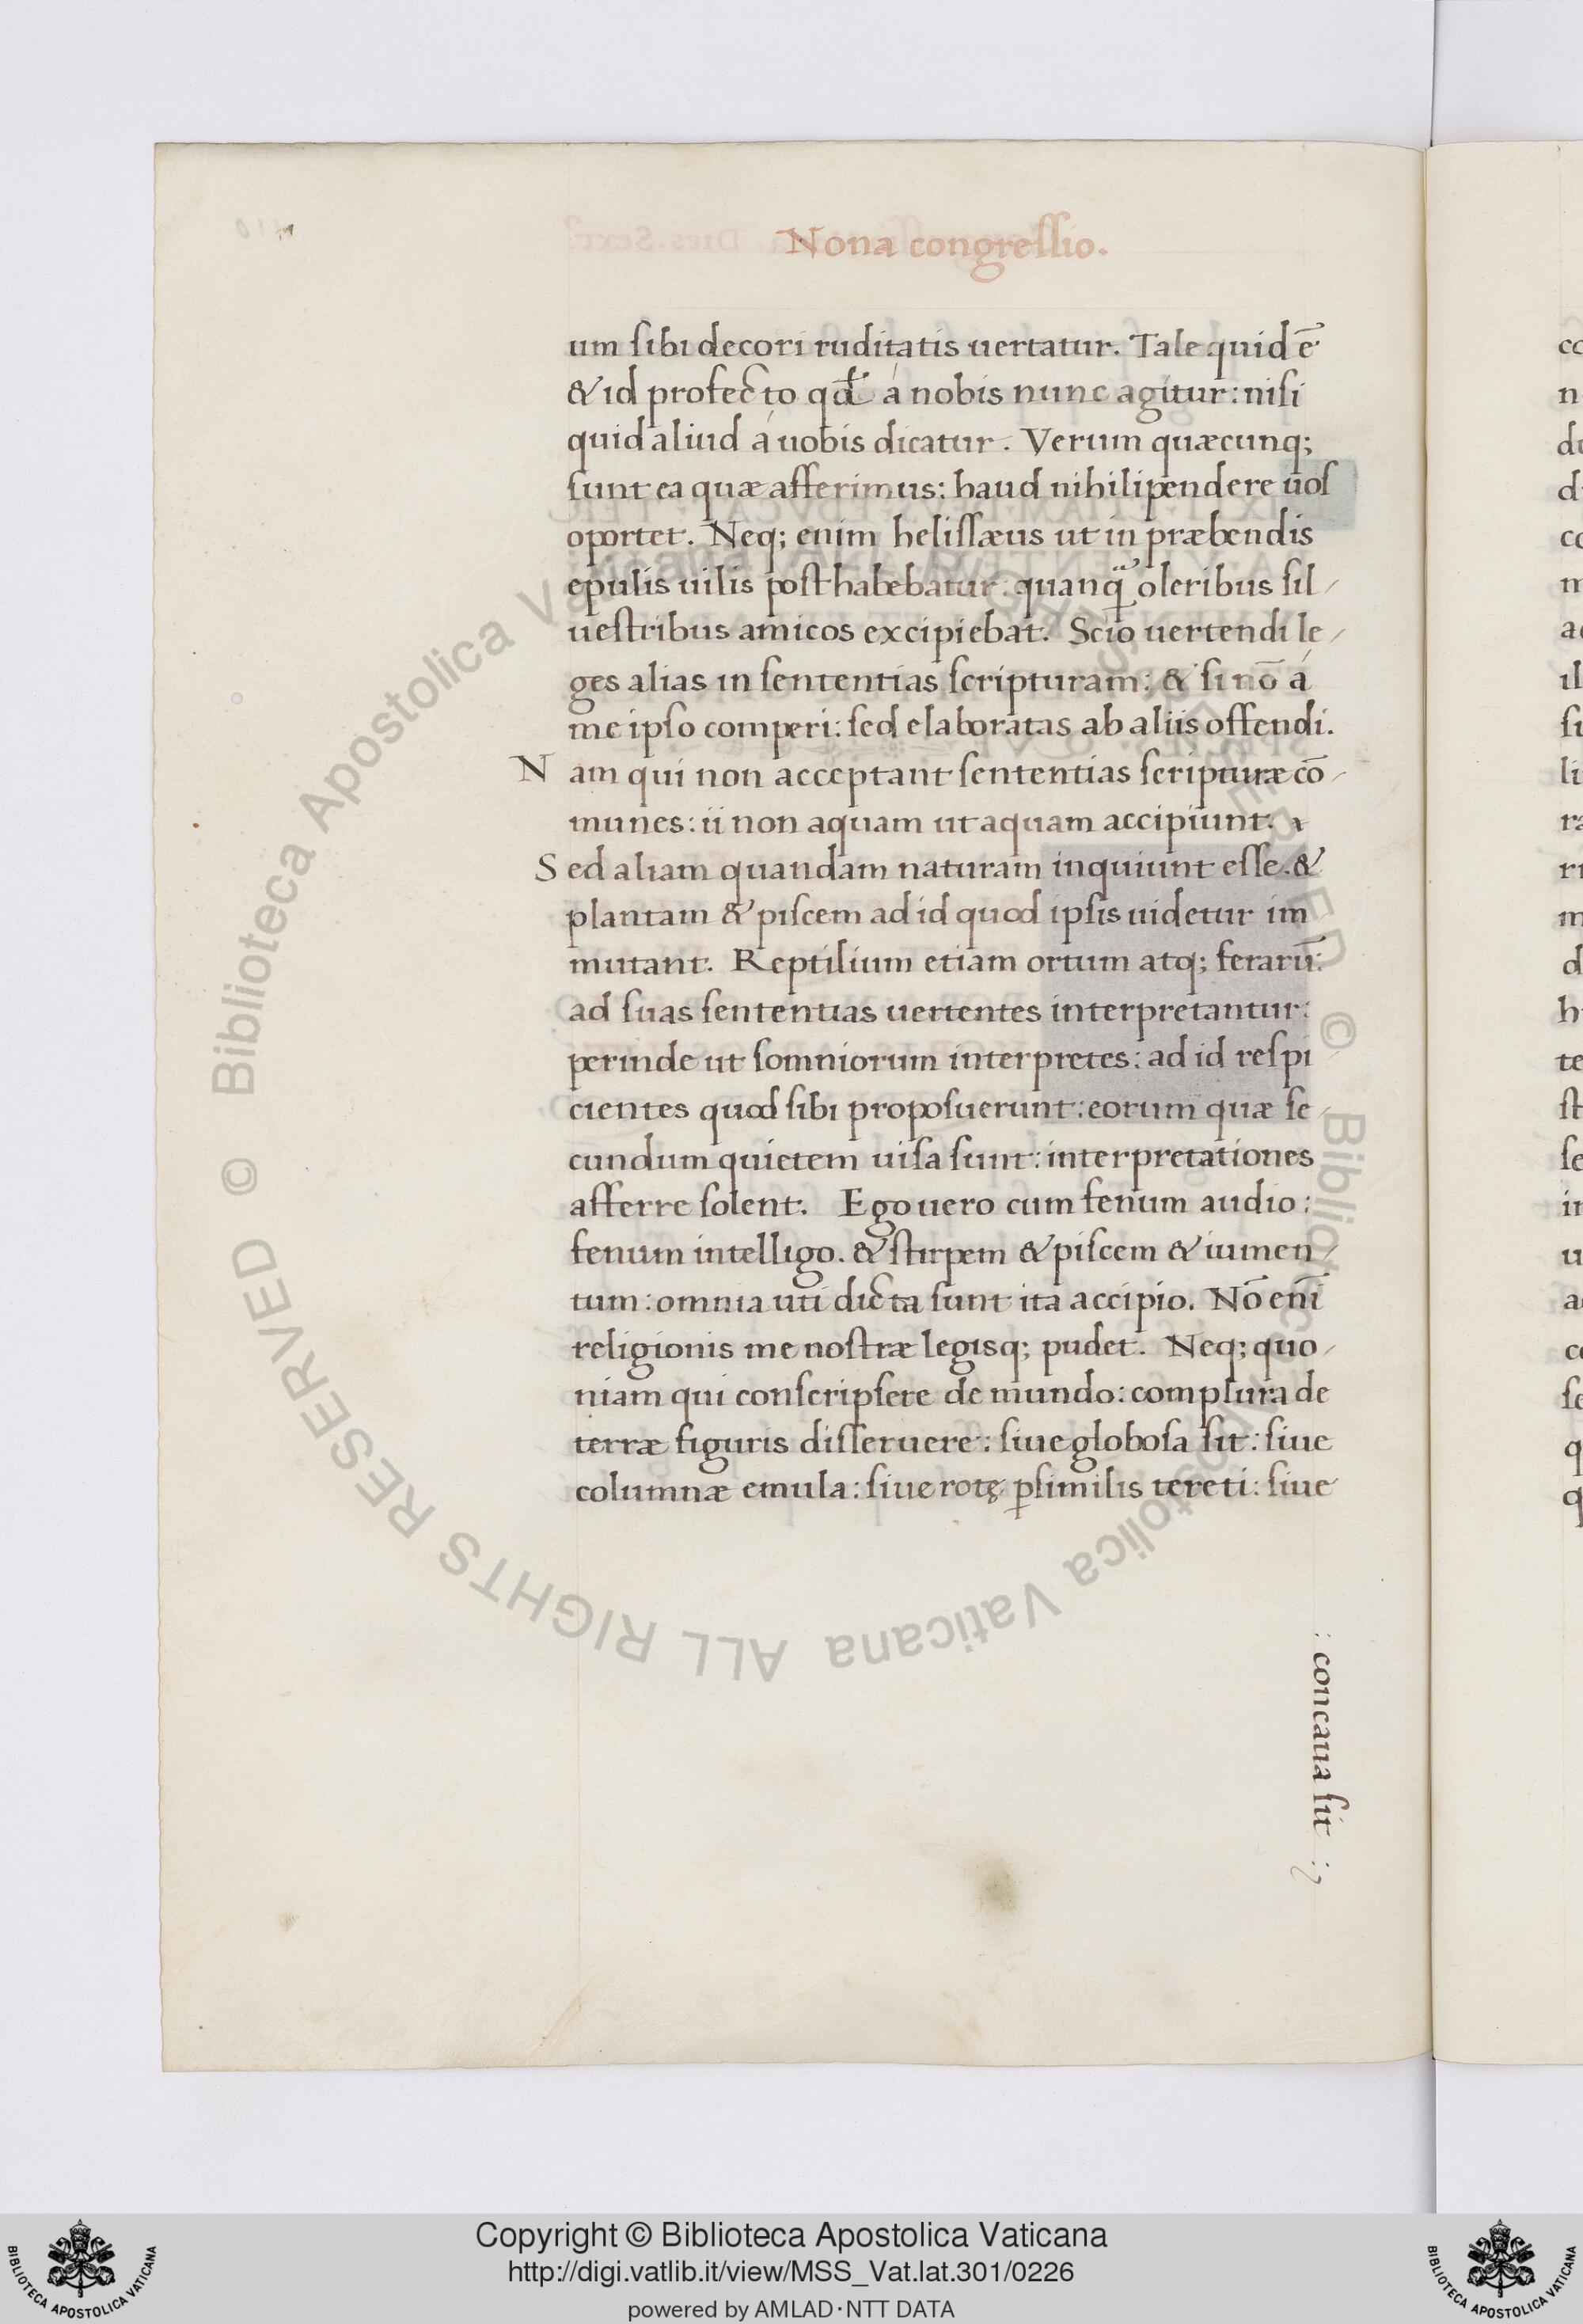 Nona congressio.
um sibi decori ruditatis uertatur. Tale quid ē
& id profecto qđ á nobis nunc agitur: nisi
quid aliud á uobis dicatur. Verum quæcunq;
sunt ea quæ afferimus: haud nihilipendere uos
oportet. Neq; enim helissæus ut in præbendis
epulis uilis posthabebatur: quanq̃ oleribus sil/
uestribus amicos excipiebat. Scio uertendi le/
ges alias in sententias scripturam: & si nō á
me ipso comperi: sed elaboratas ab aliis offendi.
Nam qui non acceptant sententias scripturæ cō/
munes: ii non aquam ut aquam accipiunt.
Sed aliam quandam naturam inquiunt esse. &
plantam & piscem ad id quod ipsis uidetur im
mutant. Reptilium etiam ortum atq; ferarū:
ad suas sententias uertentes interpretantur:
perinde ut somniorum interpretes: ad id respi
cientes quod sibi proposuerunt: eorum quæ se/
cundum quietem uisa sunt: interpretationes
afferre solent. Ego uero cum fenum audio:
fenum intelligo. & stirpem & piscem & iumen/
tum: omnia uti dicta sunt ita accipio. Nō enī
religionis me nostræ legisq; pudet. Neq; quo/
niam qui conscripsere de mundo: complura de
terræ figuris disseruere: siue globosa sit: siue
columnæ emula: siue rotę ꝑsimilis tereti: siue
: concaua sit :
© Biblioteca Apostolica Vaticana ALL RIGHTS RESERVED © Biblioteca Apostolica Vaticana ALL RIGHTS RESERVED
Copyright © Biblioteca Apostolica Vaticana
http://digi.vatlib.it/view/MSS_Vat.lat.301/0226
powered by AMLAD·NTT DATA
BIBLIOTECA APOSTOLICA VATICANA
BIBLIOTECA APOSTOLICA VATICANA